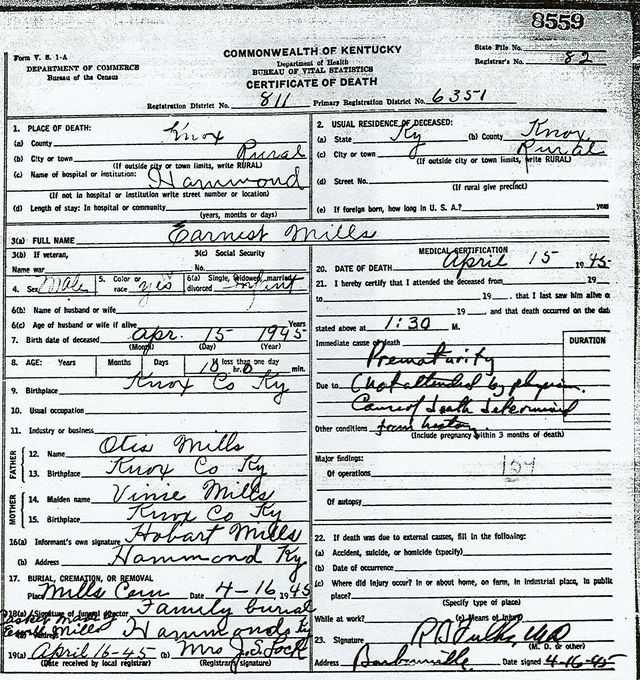 8559
Form V. S. 1-A
DEPARTMENT OF COMMERCE
Bureau of the Census
COMMONWEALTH OF KENTUCKY
Department of Health
BUREAU OF VITAL STATISTICS
CERTIFICATE OF DEATH
State File No.
Registrar's No. 82
Registration District No. 811 Primary Registration District No. 6351
1. PLACE OF DEATH:
(a) County Knox
(b) City or town Rural
(If outside city or town limits, write RURAL)
(c) Name of hospital or institution: Hammond
(If not in hospital or institution write street number or location)
(d) Length of stay: In hospital or community
(years, months or days)
2. USUAL RESIDENCE OF DECEASED:
(a) State Ky (b) County Knox
(c) City or town Rural
(If outside city or town limits, write RURAL)
(d) Street No.
(If rural give precinct)
(e) If foreign born, how long in U. S. A.? years
3(a) FULL NAME Earnest Mills
3(b) If veteran,
Name war
3(c) Social Security
No.
4. Sex Male 5. Color or race yes 6(a) Single, widowed, married, divorced Infant
6(b) Name of husband or wife
6(c) Age of husband or wife if alive Years
7. Birth date of deceased Apr. 15 1945
(Month) (Day) (Year)
8. AGE: Years Months Days If less than one day
10 hr. 0 min.
9. Birthplace Knox Co Ky
10. Usual occupation
11. Industry or business
FATHER
12. Name Otis Mills
13. Birthplace Knox Co Ky
MOTHER
14. Maiden name Vinie Mills
15. Birthplace Knox Co Ky
16(a) Informant's own signature Hobart Mills
(b) Address Hammond Ky
17. BURIAL, CREMATION, OR REMOVAL
Place Mills Cem Date 4-16 1945
18(a) Signature of funeral director Family burial
Casket Made by
Mills Hammonds Ky
19(a) April 16-45 (b) Mrs J. S. Lock
(Date received by local registrar) (Registrar's signature)
MEDICAL CERTIFICATION
20. DATE OF DEATH April 15 1945
21. I hereby certify that I attended the deceased from 19
to 19 , that I last saw him alive on
19 , and that death occurred on the date
stated above at 1:30 M.
Immediate cause of death
DURATION
Prematurity
Due to (not attended by physician.
Cause of death determined
Other conditions from history
(Include pregnancy within 3 months of death)
Major findings:
Of operations
Of autopsy
22. If death was due to external causes, fill in the following:
(a) Accident, suicide, or homicide (specify)
(b) Date of occurrence
(c) Where did injury occur? In or about home, on farm, in industrial place, in public
place?
(Specify type of place)
While at work? (e) Means of injury
23. Signature MD
(M. D. or other)
Address Barbourville Date signed 4-16-45